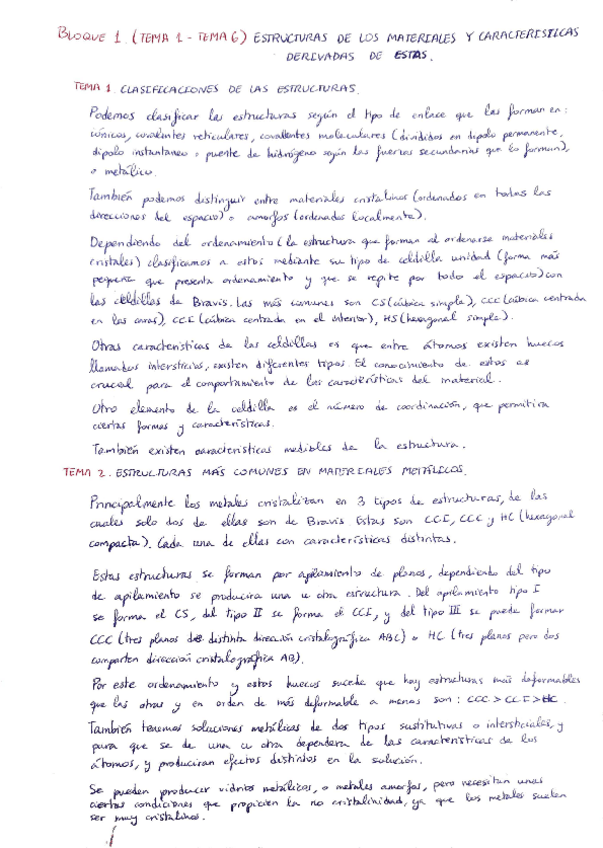 BLOQUE 1. (TEMA 1 - TEMA 6) ESTRUCTURAS DE LOS MATERIALES Y CARACTERISTICAS
DERIVADAS DE ESTAS.
TEMA 1. CLASIFICACIONES DE LAS ESTRUCTURAS.
Podemos clasificar las estructuras según el tipo de enlace que las forman en:
iónicos, covalentes reticulares, covalentes moleculares (divididos en dipolo permanente,
dipolo instantaneo o puente de hidrógeno según las fuerzas secundarias que lo forman),
o metálico.
También podemos distinguir entre materiales cristalinos (ordenados en todas las
direcciones del espacio) o amorfos (ordenados localmente).
Dependiendo del ordenamiento (la estructura que forman al ordenarse materiales
cristales) clasificamos a estos mediante su tipo de celdilla unidad (forma más
pequeña que presenta ordenamiento y que se repite por todo el espacio) con
las celdillas de Bravis. Las más comunes son CS (cúbica simple), CCC (cúbica centrada
en las caras), CCI (cúbica centrada en el interior), HS (hexagonal simple).
Otras caracteristicas de las celdillas es que entre átomos existen huecos
llamados intersticios, existen diferentes tipos. El conocimiento de estos es
crucial para el comportamiento de las caracteristicas del material.
Otro elemento de la celdilla es el número de coordinación, que permitira
ciertas formas y caracteristicas.
También existen caracteristicas medibles de la estructura.
TEMA 2. ESTRUCTURAS MÁS COMUNES EN MATERIALES METÁLICOS.
Principalmente los metales cristalizan en 3 tipos de estructuras, de las
cuales solo dos de ellas son de Bravis Estas son CCI, CCC y HC (hexagonal
compacta). Cada una de ellas con caracteristicas distintas.
Estas estructuras se forman por apilamiento de planos, dependiendo del tipo
de apilamiento se producira una u otra estructura. Del apilamiento tipo I
se forma el CS, del tipo II se forma el CCI, y del tipo III se puede formar
CCC (tres planos de distinta dirección cristalográfica ABC) o HC (tres planos pero dos
comparten dirección cristalográfica AB).
Por este ordenamiento y estos huecos sucede que hay estructuras más deformables
que las otras y en orden de más deformable a menos son: CCC > CCI > HC.
También tenemos soluciones metálicas de dos tipos sustitutivas o intersticiales, y
para que se de una u otra dependera de las caracteristicas de los
átomos, y produciran efectos distintos en la solución.
Se pueden producir vidrios metálicos, o metales amorfos, pero necesitan unas
ciertas condiciones que propicien la no cristalinidad, ya que los metales suelen
ser muy cristalinos.